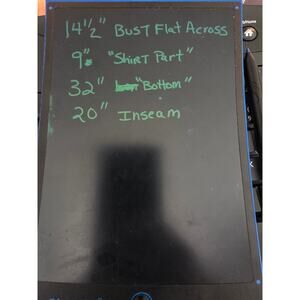 14½" Bust Flat Across
9" "Shirt Part"
32" "Bottom"
20" Inseam